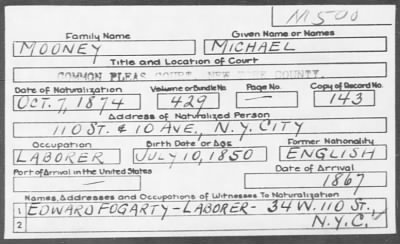 M500
Family Name Given Name or Names
MOONEY MICHAEL
Title and Location of Court
COMMON PLEAS COURT, NEW YORK COUNTY.
Date of Naturalization Volume or Bundle No. Page No. Copy of Record No.
OCT. 7, 1874 429 — 143
Address of Naturalized Person
110 ST. & 10 AVE., N.Y. CITY
Occupation Birth Date or Age Former Nationality
LABORER JULY 10, 1850 ENGLISH
Port of Arrival in the United States Date of Arrival
— 1867
Names, Addresses and Occupations of Witnesses To Naturalization
1 EDWARD FOGARTY - LABORER - 34 W. 110 ST.,
2 N.Y.C.